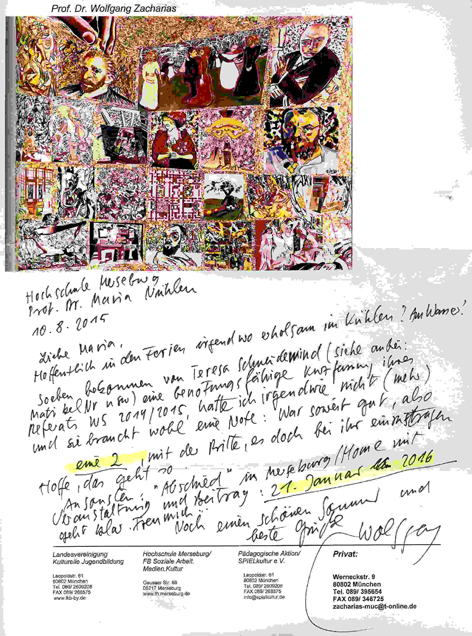 Prof. Dr. Wolfgang Zacharias
Hochschule Merseburg
Prof. Dr. Maria Nühlen
10.8.2015
Liebe Maria,
Hoffentlich in den Ferien irgendwo erholsam im Kühlen? Am Wasser?
Soeben bekommen von Teresa Schneidemind (siehe anbei:
Matrikel Nr usw) eine benotungsfähige Kurzfassung ihres
Referats WS 2014/2015, hatte ich irgendwie nicht (mehr)
und sie braucht wohl eine Note: War soweit gut, also
eine 2, mit der Bitte, es doch bei ihr einzutragen
Hoffe, das geht so
Ansonsten: "Abschied" in Merseburg/Home mit
Veranstaltung und Beitrag: 21. Januar 2016
geht klar. Freu mich
Noch einen schönen Sommer und
beste Grüße Wolfgang
Landesvereinigung
Kulturelle Jugendbildung
Leopoldstr. 61
80802 München
www.lkb-by.de
Hochschule Merseburg/
FB Soziale Arbeit.
Medien.Kultur
Geusaer Str. 88
06217 Merseburg
www.fh.merseburg.de
Pädagogische Aktion/
SPIELkultur e.V.
Leopoldstr. 61
80802 München
info@spielkultur.de
Privat:
Werneckstr. 9
80802 München
Tel. 089/ 395654
FAX 089/ 346725
zacharias-muc@t-online.de